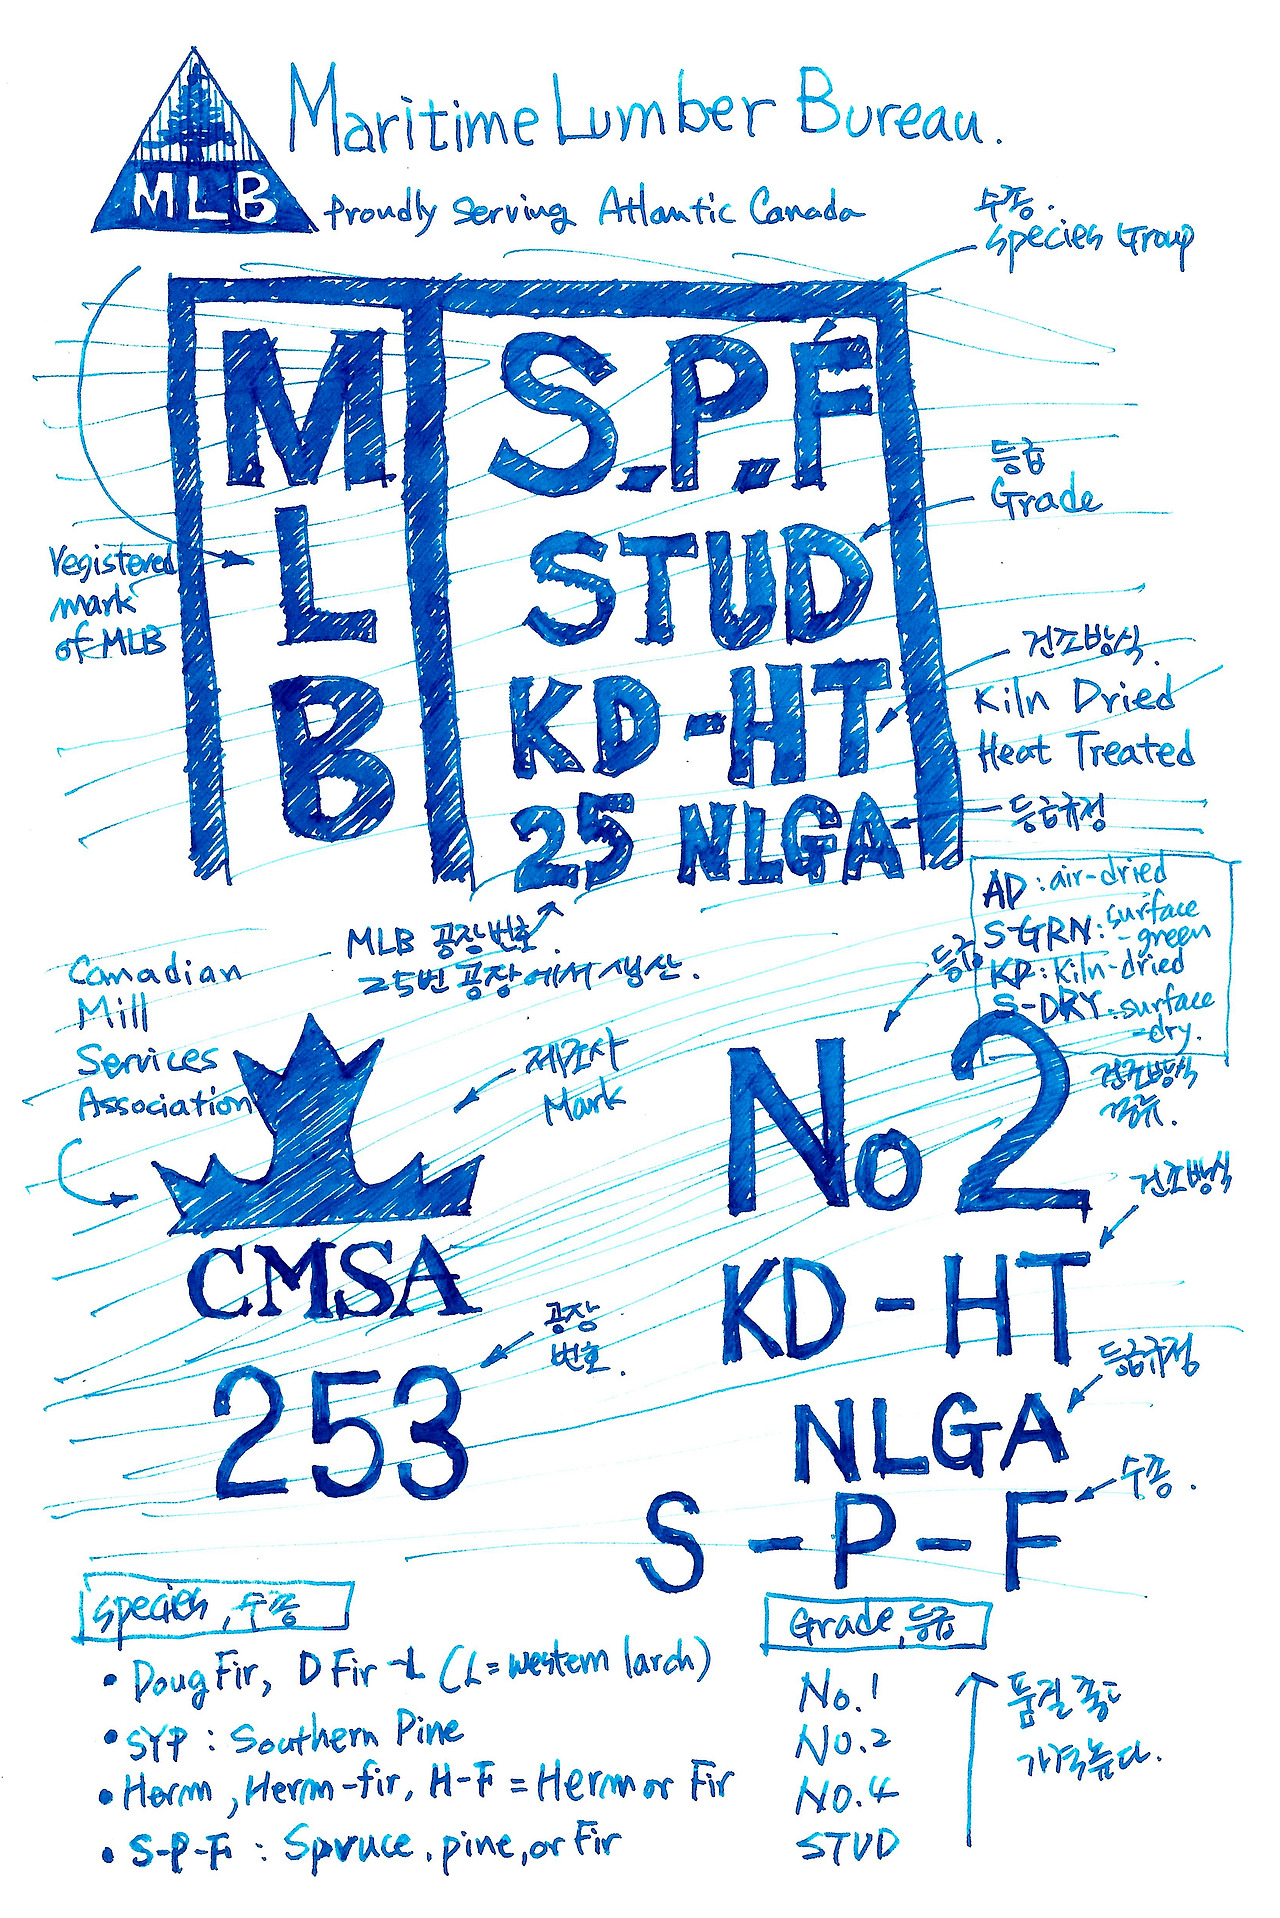 MLB
Maritime Lumber Bureau.
Proudly Serving Atlantic Canada
수종.
Species Group
M
L
B
S.P.F
STUD
KD-HT
25 NLGA
registered
mark
of MLB
등급
Grade
건조방식.
Kiln Dried
Heat Treated
등급규정
MLB 공장번호.
25번 공장에서 생산.
AD : air-dried
S-GRN : surface
-green
KD : Kiln-dried
S-DRY : surface
-dry.
건조방식
종류.
Canadian
Mill
Services
Association
제조사
Mark
CMSA
253
공장
번호.
등급
No 2
건조방식
KD-HT
등급규정
NLGA
수종.
S-P-F
Species, 수종
• Doug Fir, D Fir-L (L=western larch)
• SYP : Southern Pine
• Herm, Herm-fir, H-F = Herm or Fir
• S-P-F : Spruce, pine, or Fir
Grade, 등급
No.1
No.2
No.4
STUD
품질 좋다
가격높다.